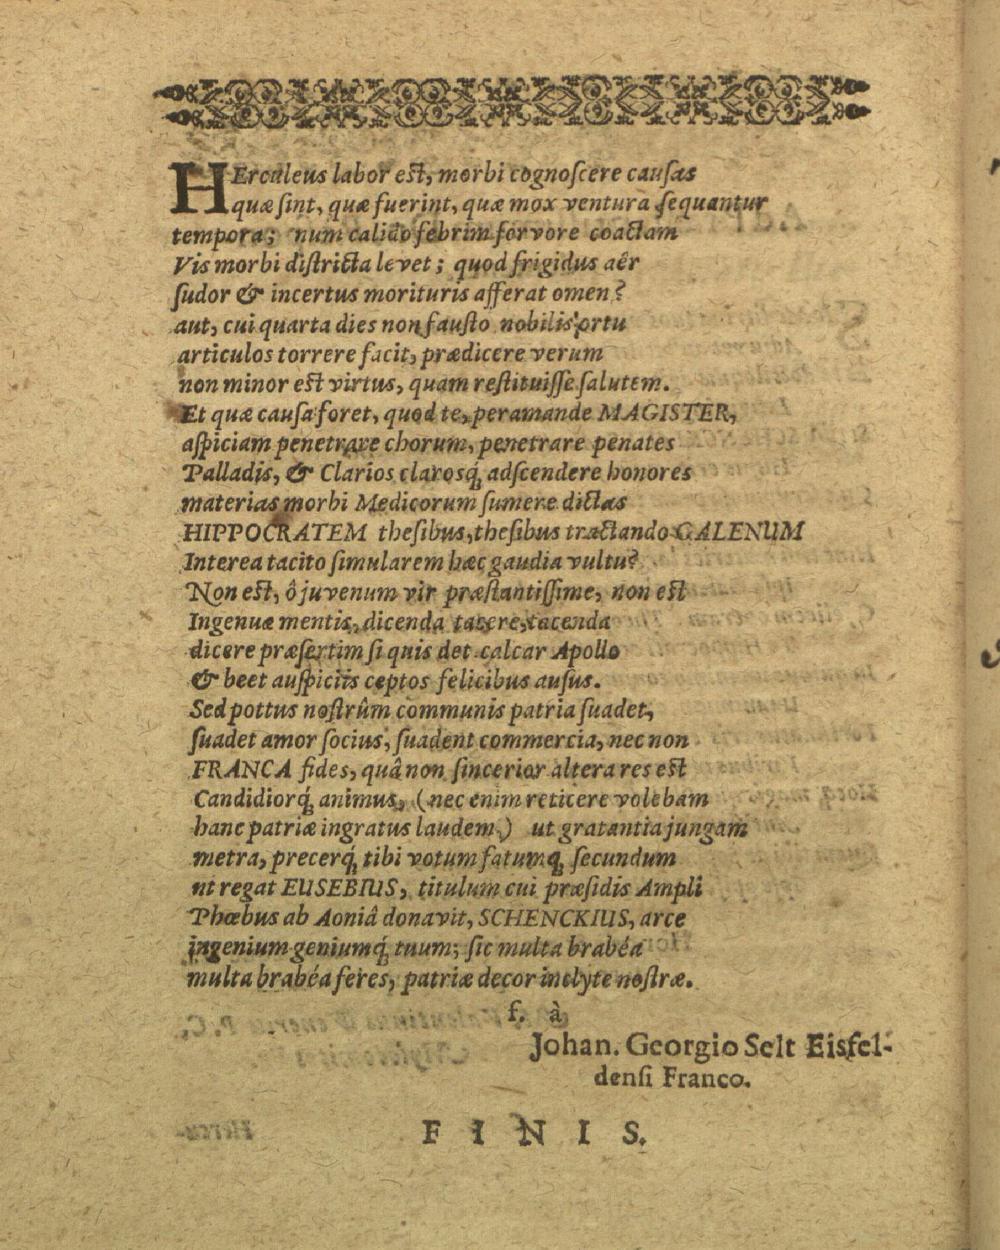 HErculeus labor est, morbi cognoſcere cauſas
quæ ſint, quæ fuerint, quæ mox ventura ſequantur
tempora; num calido febrim fervore coactam
Vis morbi diſtricta levet; quod frigidus aër
ſudor & incertus morituris afferat omen?
aut, cui quarta dies non fauſto nobilis ortu
articulos torrere facit, prædicere verum
non minor est virtus, quam reſtituiſſe ſalutem.
Et quæ cauſa foret, quod te, peramande MAGISTER,
aſpiciam penetrare chorum, penetrare penates
Palladis, & Clarios clarosq́; adſcendere honores
materias morbi Medicorum ſumere dictas
HIPPOCRATEM theſibus, theſibus tractando GALENUM
Interea tacito ſimularem hæc gaudia vultu?
Non est, ô juvenum vir præſtantiſſime, non est
Ingenuæ mentis, dicenda tacere, tacenda
dicere præſertim ſi quis det calcar Apollo
& beet auſpiciis ceptos felicibus auſus.
Sed pottus noſtrûm communis patria ſuadet,
ſuadet amor ſocius, ſuadent commercia, nec non
FRANCA fides, quâ non ſincerior altera res est
Candidiorq́; animus, (nec enim reticere volebam
hanc patriæ ingratus laudem,) ut gratantia jungam
metra, precerq́; tibi votum fatumq́; ſecundum
ut regat EUSEBIUS, titulum cui præſidis Ampli
Phœbus ab Aoniâ donavit, SCHENCKIUS, arce
ingenium geniumq́; tuum; ſic multa brabéa
multa brabéa feres, patriæ decor inclyte noſtræ.
f. à
Johan. Georgio Selt Eisfel-
denſi Franco.
FINIS.